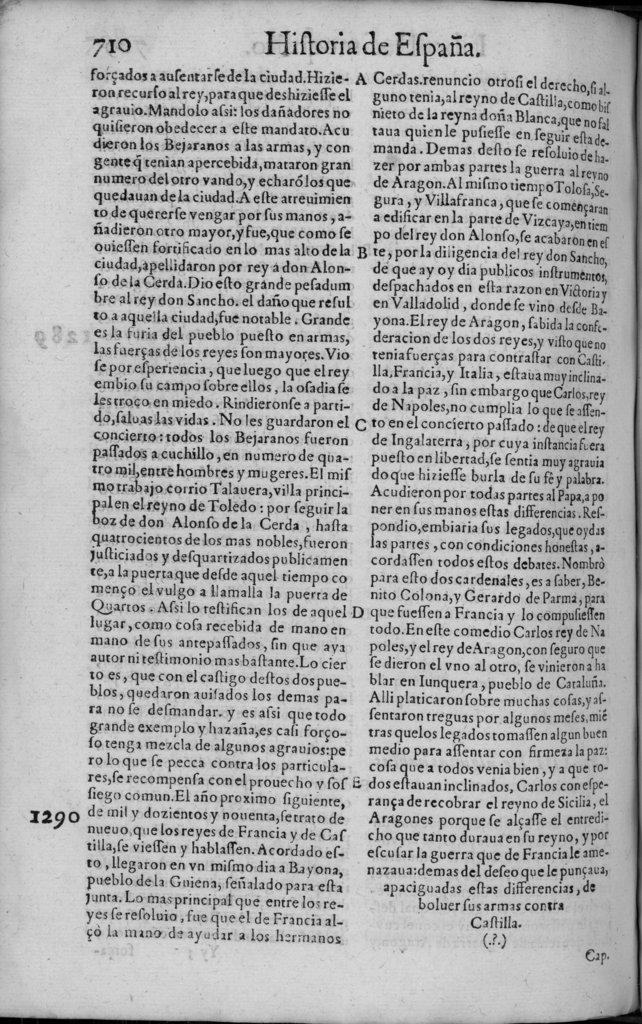 710 Historia de España.
forçados a ausentarse de la ciudad. Hizie-
ron recurso al rey, para que deshiziesse el
agrauio. Mandolo assi: los dañadores no
quisieron obedecer a este mandato. Acu
dieron los Bejaranos a las armas, y con
gente q̃ tenian apercebida, mataron gran
numero del otro vando, y echarõ los que
quedauan de la ciudad. A este atreuimien
to de quererse vengar por sus manos, a-
ñadieron otro mayor, y fue, que como se
ouiessen fortificado en lo mas alto de la
ciudad, apellidaron por rey a don Alon-
so de la Cerda. Dio esto grande pesadum
bre al rey don Sancho. el daño que resul
to a aquella ciudad, fue notable. Grande
es la furia del pueblo puesto en armas,
las fuerças de los reyes son mayores. Vio
se por esperiencia, que luego que el rey
embio su campo sobre ellos, la osadia se
les troco en miedo. Rindieronse a parti-
do, saluas las vidas. No les guardaron el
concierto: todos los Bejaranos fueron
passados a cuchillo, en numero de qua-
tro mil, entre hombres y mugeres. El mis
mo trabajo corrio Talauera, villa princi-
pal en el reyno de Toledo: por seguir la
boz de don Alonso de la Cerda, hasta
quatrocientos de los mas nobles, fueron
justiciados y desquartizados publicamen
te, a la puerta que desde aquel tiempo co
menço el vulgo a llamalla la puerta de
Quartos. Assi lo testifican los de aquel
lugar, como cosa recebida de mano en
mano de sus antepassados, sin que aya
autor ni testimonio mas bastante. Lo cier
to es, que con el castigo destos dos pue-
blos, quedaron auisados los demas pa-
ra no se desmandar. y es assi que todo
grande exemplo y hazaña, es casi forço-
so tenga mezcla de algunos agrauios: pe
ro lo que se pecca contra los particula-
res, se recompensa con el prouecho y sos
siego comun. El año proximo siguiente,
1290 de mil y dozientos y nouenta, se trato de
nueuo, que los reyes de Francia y de Cas
tilla, se viessen y hablassen. Acordado es-
to, llegaron en vn mismo dia a Bayona,
pueblo de la Guiena, señalado para esta
junta. Lo mas principal que entre los re-
yes se resoluio, fue que el de Francia al-
çò la mano de ayudar a los hermanos
A
B
C
D
E
Cerdas. renuncio otrosi el derecho, si al-
guno tenia, al reyno de Castilla, como bis
nieto de la reyna doña Blanca, que no fal
taua quien le pusiesse en seguir esta de-
manda. Demas desto se resoluio de ha-
zer por ambas partes la guerra al reyno
de Aragon. Al mismo tiempo Tolosa, Se-
gura, y Villafranca, que se començaran
a edificar en la parte de Vizcaya, en tiem
po del rey don Alonso, se acabaron en es
te, por la diligencia del rey don Sancho,
de que ay oy dia publicos instrumentos,
despachados en esta razon en Victoria y
en Valladolid, donde se vino desde Ba-
yona. El rey de Aragon, sabida la confe-
deracion de los dos reyes, y visto que no
tenia fuerças para contrastar con Casti-
lla, Francia, y Italia, estaua muy inclina-
do a la paz, sin embargo que Carlos, rey
de Napoles, no cumplia lo que se assen-
to en el concierto passado: de que el rey
de Ingalaterra, por cuya instancia fuera
puesto en libertad, se sentia muy agrauia
do que hiziesse burla de su fè y palabra.
Acudieron por todas partes al Papa, a po
ner en sus manos estas differencias. Res-
pondio, embiaria sus legados, que oydas
las partes, con condiciones honestas, a-
cordassen todos estos debates. Nombrò
para esto dos cardenales, es a saber, Be-
nito Colona, y Gerardo de Parma, para
que fuessen a Francia y lo compusiessen
todo. En este comedio Carlos rey de Na
poles, y el rey de Aragon, con seguro que
se dieron el vno al otro, se vinieron a ha
blar en Iunquera, pueblo de Cataluña.
Alli platicaron sobre muchas cosas, y as-
sentaron treguas por algunos meses, miẽ
tras que los legados tomassen algun buen
medio para assentar con firmeza la paz:
cosa que a todos venia bien, y a que to-
dos estauan inclinados, Carlos con espe-
rança de recobrar el reyno de Sicilia, el
Aragones porque se alçasse el entredi-
cho que tanto duraua en su reyno, y por
escusar la guerra que de Francia le ame-
nazaua: demas del deseo que le punçaua,
apaciguadas estas differencias, de
boluer sus armas contra
Castilla.
(.?.)
Cap.